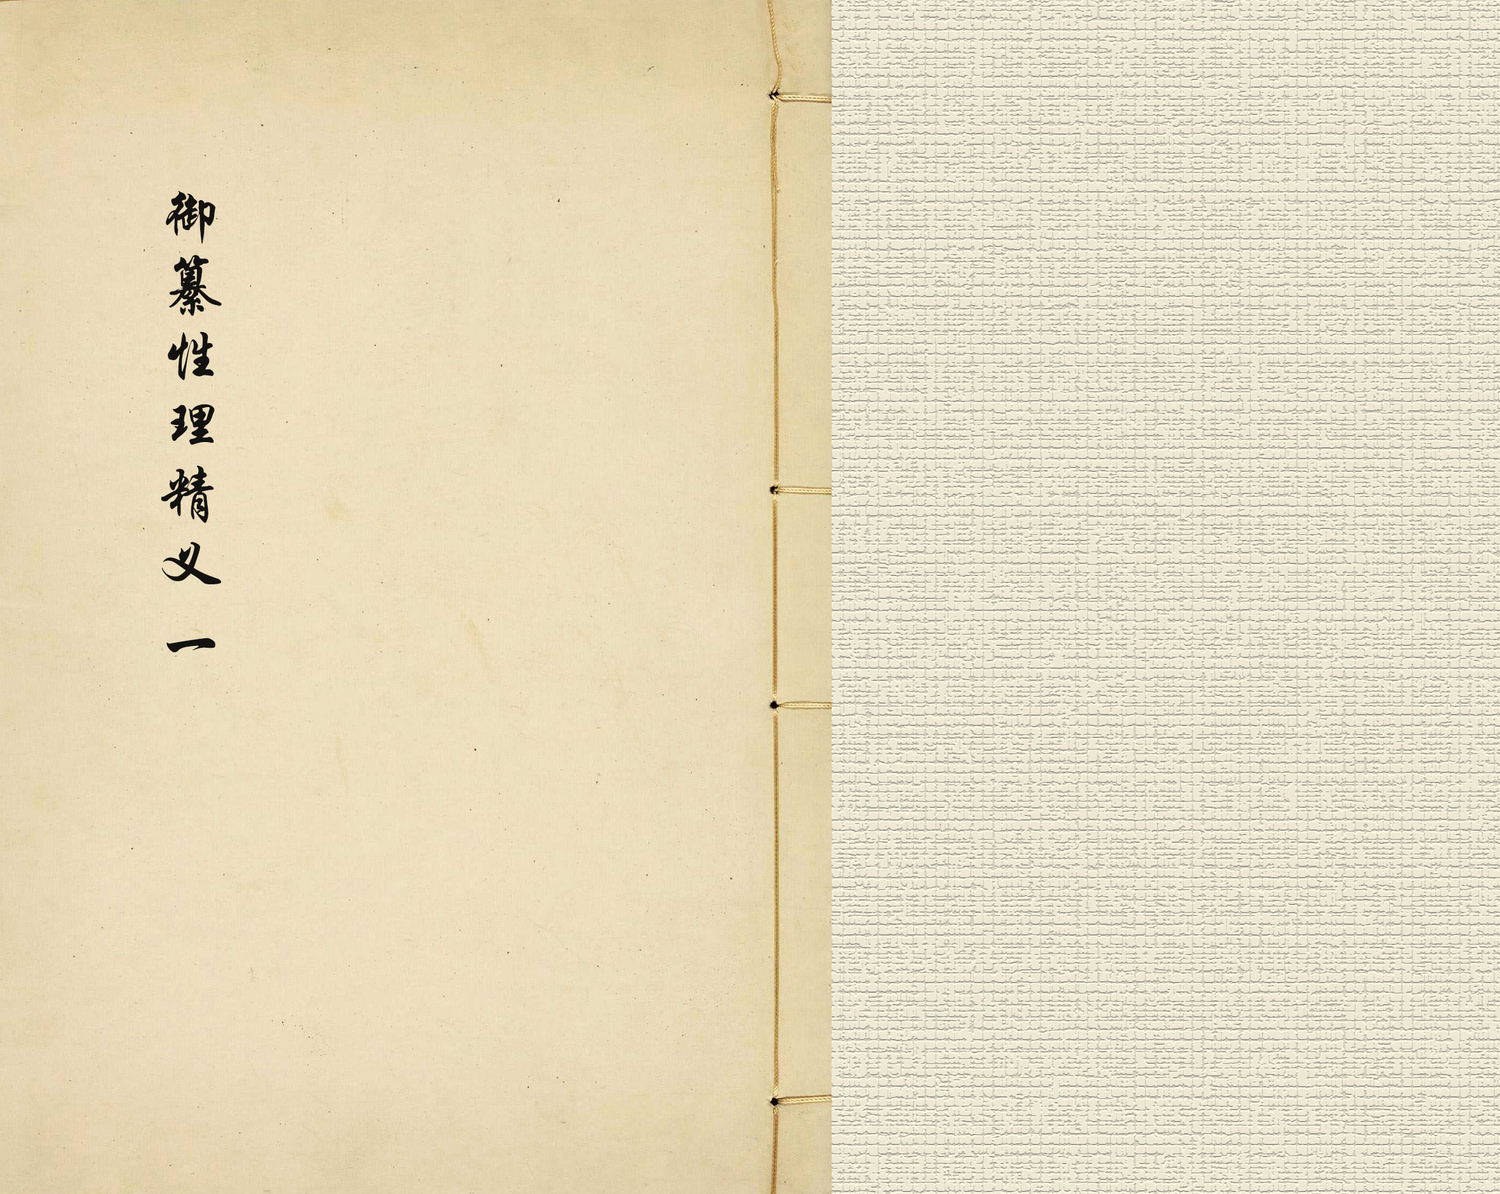 御纂性理精义一